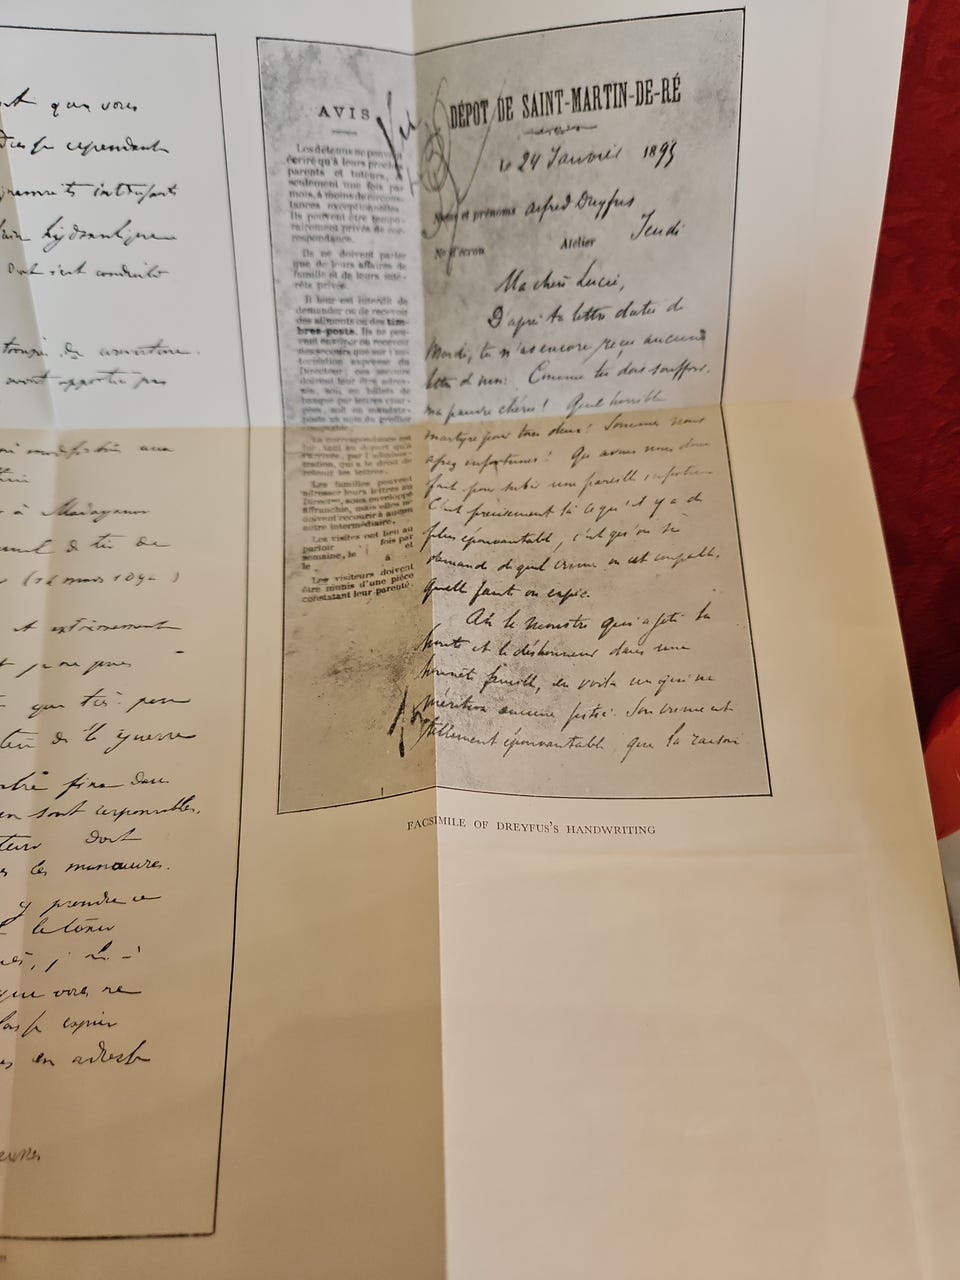 nt que vous
cependant
intéressant
frein hydraulique
dont s'est conduite
troupes de couverture.
seront apportées par
modification aux
à Madagascar
de tir de
(14 mars 1894)
est extrêmement
que très peu
de la guerre
fixe dans
en sont responsables,
dont
les manœuvres.
y prendre ce
le tenir
que vous ne
fasse copier
en adresse
AVIS
Les détenus ne peuvent
écrire qu'à leurs proches
parents et tuteurs, et
seulement une fois par
mois, à moins de circons-
tances exceptionnelles.
Ils peuvent être tempo-
rairement privés de cor-
respondance.
Ils ne doivent parler
que de leurs affaires de
famille et de leurs inté-
rêts privés.
Il leur est interdit de
demander ou de recevoir
des aliments ou des tim-
bres-poste. Ils ne peu-
vent envoyer ou recevoir
des secours que sur l'au-
torisation expresse du
Directeur; ces secours
doivent leur être adres-
sés, soit en billets de
banque par lettres char-
gées, soit en mandats-
poste au nom du greffier
comptable.
La correspondance est
lue tant au départ qu'à
l'arrivée, par l'adminis-
tration, qui a le droit de
retenir les lettres.
Les familles peuvent
adresser leurs lettres au
Directeur, sous enveloppe
affranchie, mais elles ne
doivent recourir à aucun
autre intermédiaire.
Les visites ont lieu au
parloir fois par
semaine, le et
le à
Les visiteurs doivent
être munis d'une pièce
constatant leur parenté.
Vu
DÉPOT DE SAINT-MARTIN-DE-RÉ
le 24 Janvier 1895
Nom et prénoms Alfred Dreyfus
No d'écrou Atelier Jeudi
Ma chère Lucie,
D'après ta lettre datée de
Mardi, tu n'as encore reçu aucune
lettre de moi. Comme tu dois souffrir,
ma pauvre chérie! Quel horrible
martyre pour tous deux! Sommes nous
assez infortunés! Qu'avons nous donc
fait pour subir une pareille infortune
C'est précisément là ce qu'il y a de
plus épouvantable, c'est qu'on se
demande de quel crime on est coupable,
quelle faute on expie.
Ah le monstre qui a jeté la
honte et le déshonneur dans une
honnête famille, en voilà un qui ne
méritera aucune pitié. Son crime est
tellement épouvantable que la raison
FACSIMILE OF DREYFUS'S HANDWRITING